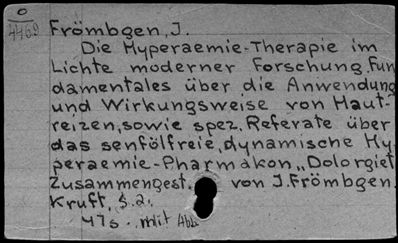 o
4469
Frömbgen, J.
Die Hyperaemie-Therapie im
Lichte moderner Forschung. Fun
damentales über die Anwendung
und Wirkungsweise von Haut-
reizen, sowie spez. Referate über
das senfölfreie, dynamische Hy-
peraemie-Pharmakon „Dolorgiet
Zusammengest. von J. Frömbgen.
Kruft, s.a.
47 s. mit Abb